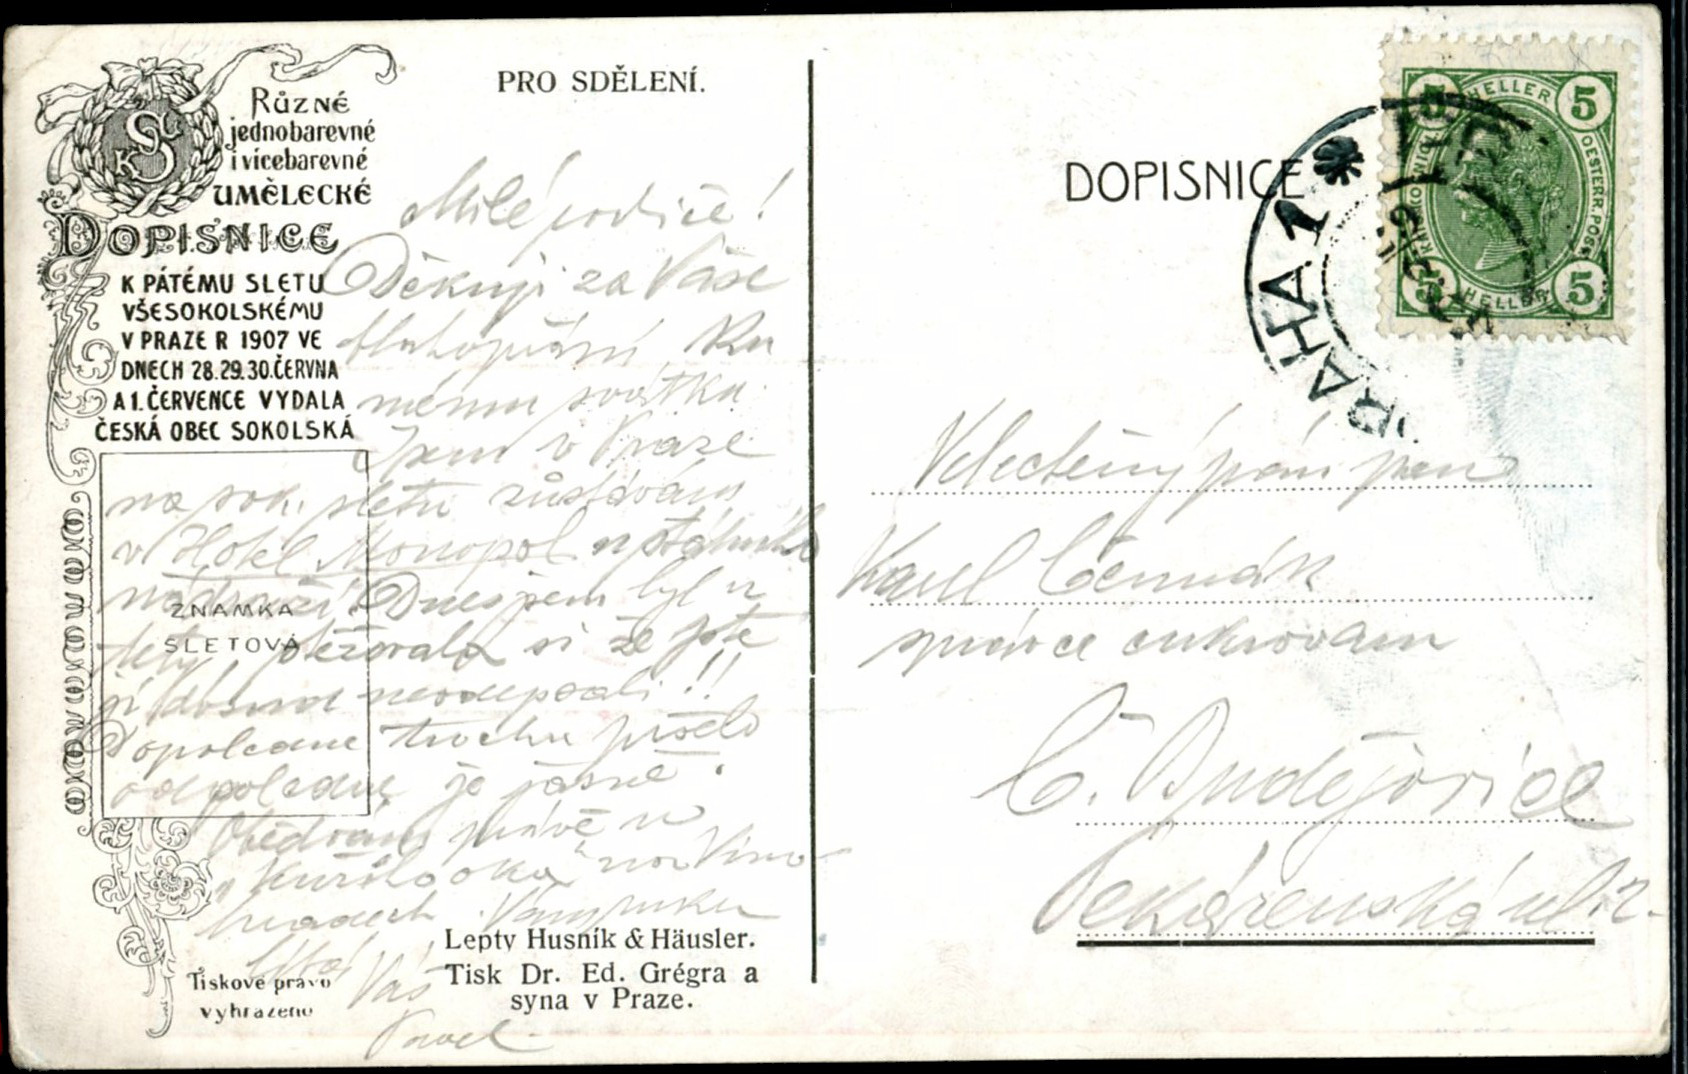 Různé
jednobarevné
i vícebarevné
UMĚLECKÉ
DOPISNICE
K PÁTÉMU SLETU
VŠESOKOLSKÉMU
V PRAZE R 1907 VE
DNECH 28.29.30.ČERVNA
A 1. ČERVENCE VYDALA
ČESKÁ OBEC SOKOLSKÁ
ZNÁMKA
SLETOVÁ
Tiskové právo
vyhrazeno
PRO SDĚLENÍ.
Milé rodiče!
Děkuji za Vaše
blahopřání ku
mému svátku.
Jsem v Praze
na sok. sletu zůstávám
v Hotel Monopol u státního
nádraží. Dnes jsem byl u
tety, stěžovala si že jste
jí dosud neodepsali!!
Dopoledne trochu pršelo
odpoledne je jasné.
Obědvám právě u
na Vino-
hradech.
Váš
Pavel
Lepty Husník & Häusler.
Tisk Dr. Ed. Grégra a
syna v Praze.
DOPISNICE
PRAHA 1
5 HELLER 5
5 HELLER 5
Velectěný pán pan
Karel Čermák
správce cukrovaru
Č. Budějovice
Pekárenská ul. 2.